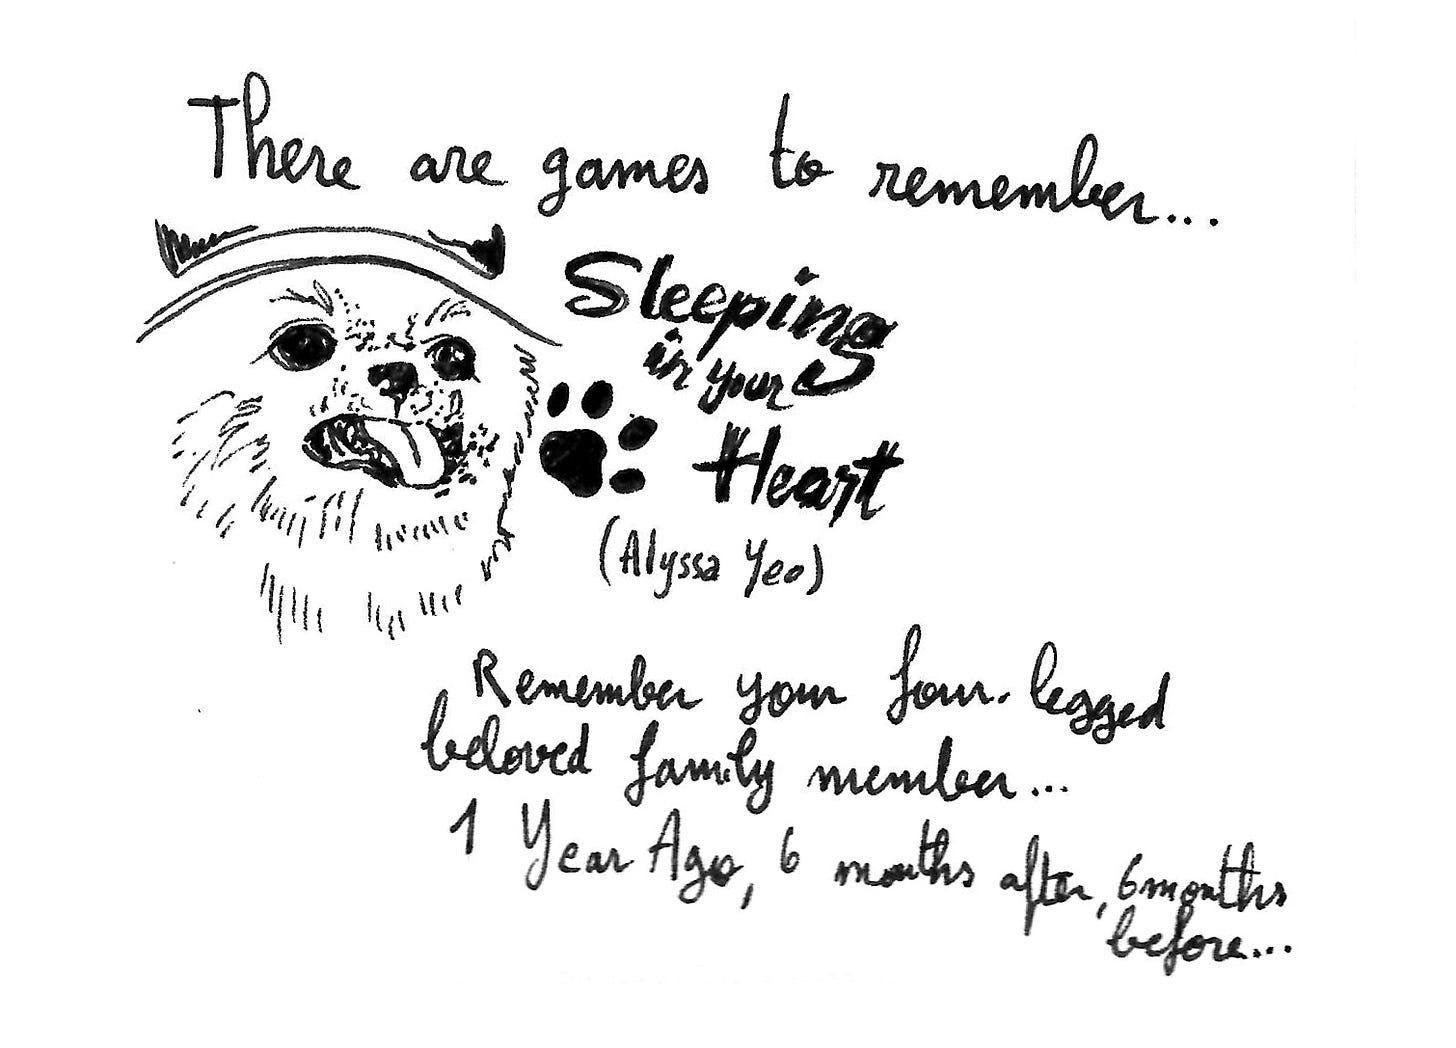 There are games to remember...
Sleeping
in your
Heart
(Alyssa Yeo)
Remember your four-legged
beloved family member...
1 Year Ago, 6 months after, 6 months
before...